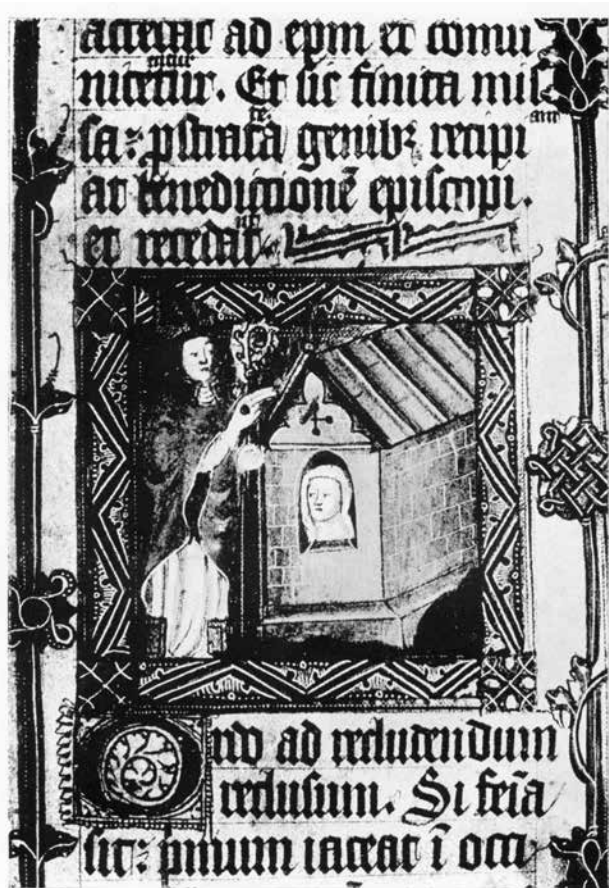 accedat ad ep̄m et comu
nicetur. Et sic finita mis
sa: ꝓstrata genibꝫ recipi
at benedictionē episcopi.
et recedat
Ordo ad recludendum
reclusum. Si feīa
sit: pmum iaceat ī occi